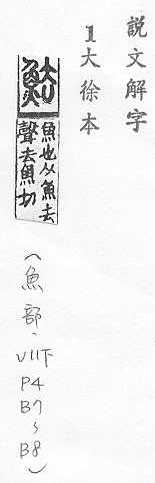 説文解字
1大徐本
魼
魚也从魚去
聲去魚切
(魚部、VII下
P4
B7
~
B8)